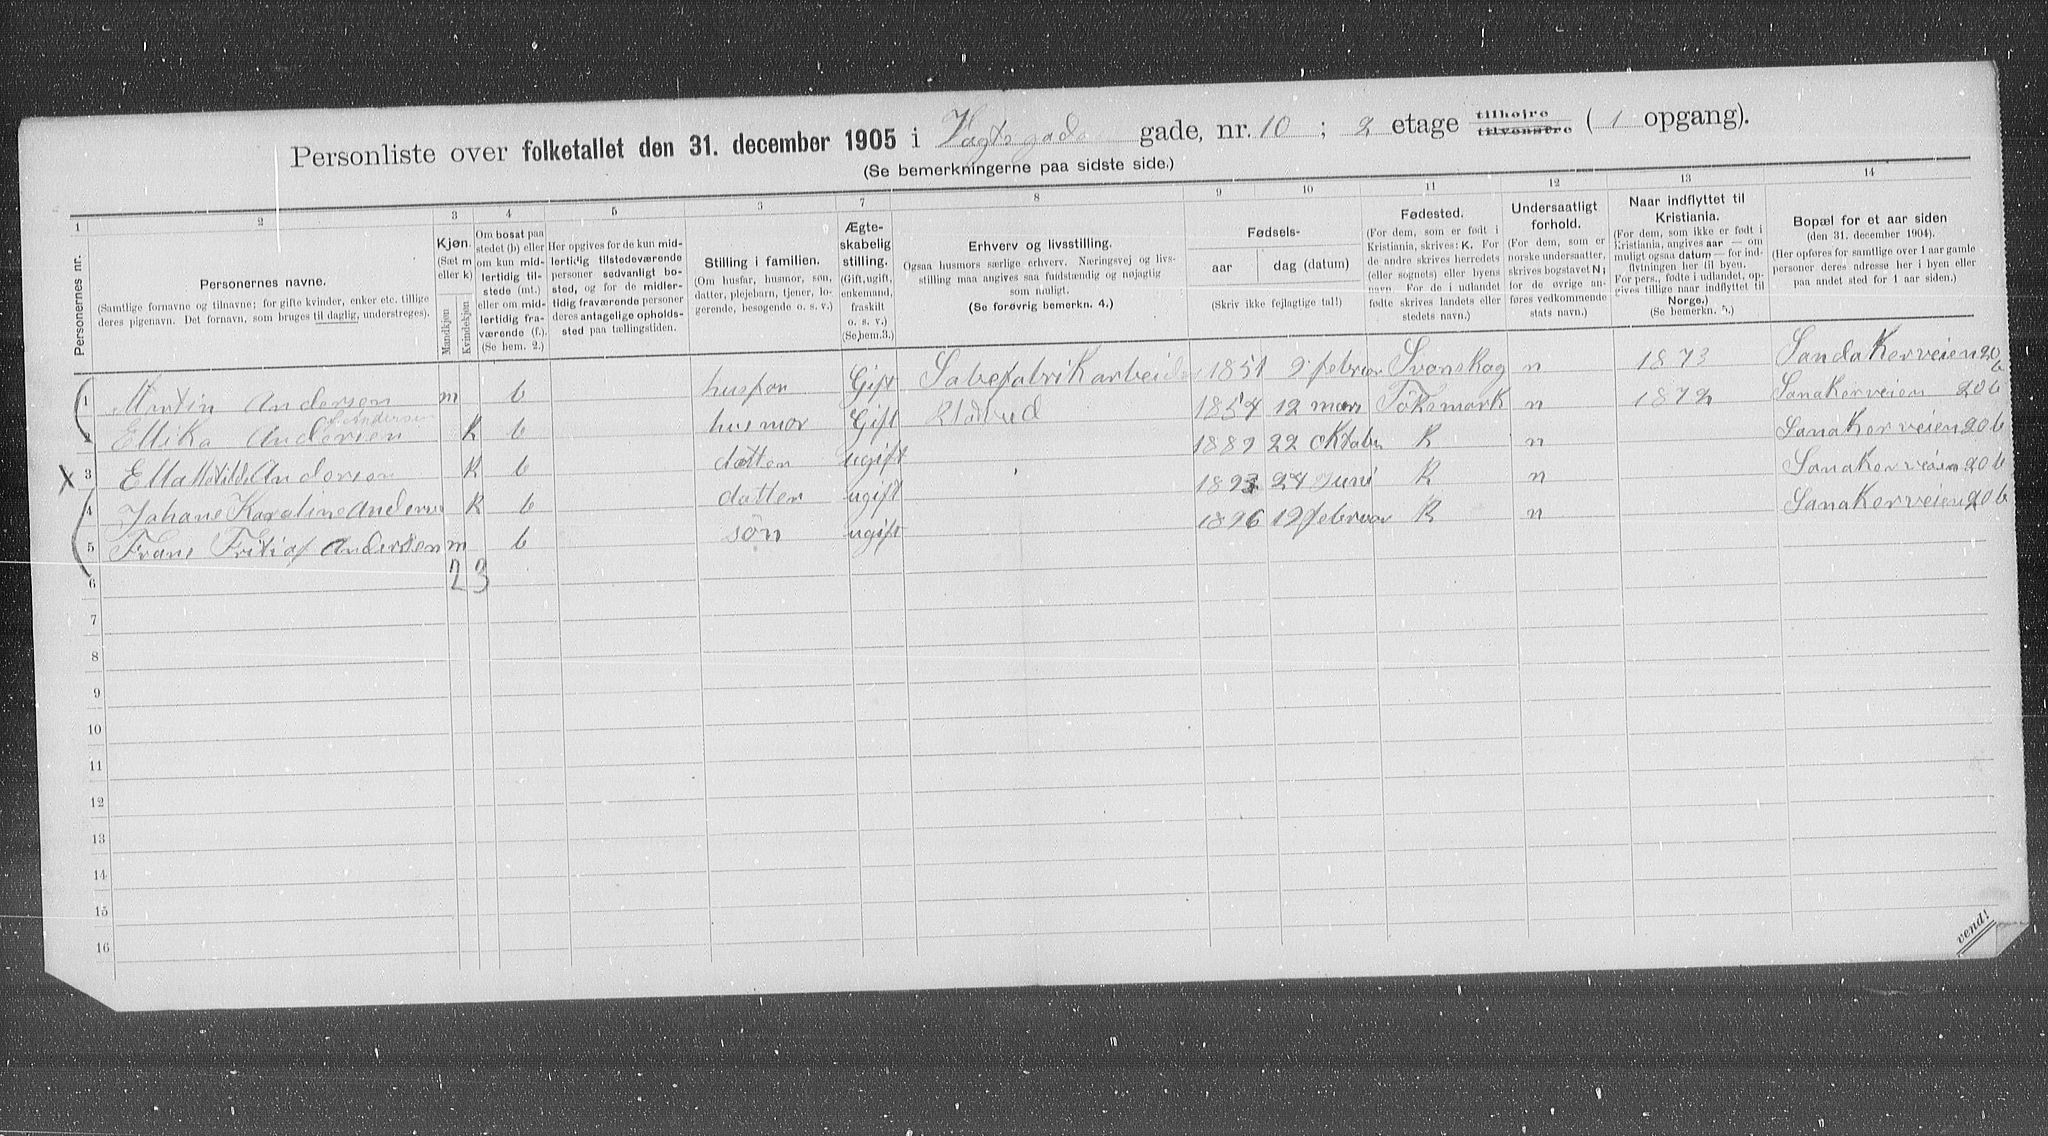 Personliste over folketallet den 31. december 1905 i Vagtsgade gade, nr. 10 ; 2 etage tilhøjre tilvenstre ( 1 opgang).
(Se bemerkningerne paa sidste side.)
1 2 3 4 5 6 7 8 9 10 11 12 13 14
Personernes nr.
Personernes navne.
(Samtlige fornavne og tilnavne; for gifte kvinder, enker etc. tillige
deres pigenavn. Det fornavn, som bruges til daglig, understreges).
Kjøn.
(Sæt m
eller k)
Mandkjøn
Kvindekjøn
Om bosat paa
stedet (b) eller
om kun mid-
lertidig til-
stede (mt.)
eller om mid-
lertidig fra-
værende (f.).
(Se bem. 2.)
Her opgives for de kun mid-
lertidig tilstedeværende
personer sedvanligt bo-
sted, og for de midler-
tidig fraværende personer
deres antagelige opholds-
sted paa tællingstiden.
Stilling i familien.
(Om husfar, husmor, søn,
datter, plejebarn, tjener, lo-
gerende, besøgende o. s. v.)
Ægte-
skabelig
stilling.
(Gift, ugift,
enkemand,
fraskilt
o. s. v.)
(Se bem. 3.)
Erhverv og livsstilling.
Ogsaa husmors særlige erhverv. Næringsvej og livs-
stilling maa angives saa fuldstændig og nøjagtig
som muligt.
(Se forøvrig bemerkn. 4.)
Fødsels-
aar
dag (datum)
(Skriv ikke fejlagtige tal!)
Fødested.
(For dem, som er født i
Kristiania, skrives: K. For
de andre skrives herredets
(eller sognets) eller byens
navn. For de i udlandet
fødte skrives landets eller
stedets navn.)
Undersaatligt
forhold.
(For dem, som er
norske undersaatter,
skrives bogstavet N;
for de øvrige an-
føres vedkommende
stats navn.)
Naar indflyttet til
Kristiania.
(For dem, som ikke er født i
Kristiania, angives aar — om
muligt ogsaa datum — for ind-
flytningen her til byen.
For pers., fødte i udlandet, op-
gives tillige naar indflyttet til
Norge.)
(Se bemerkn. 5.)
Bopæl for et aar siden
(den 31. december 1904).
(Her opføres for samtlige over 1 aar gamle
personer deres adresse her i byen eller
paa andet sted for 1 aar siden.)
1 Martin Andersen m b husfar Gift Sabefabrikarbeider 1851 9 februar Svanskog n 1873 Sandakerveien 20 b
f. Andersen
2 Ellika Andersen K b husmor Gift 1854 12 mars Töksmark n 1872 Sanakerveien 20 b
X 3 Ella Matilde Andersen K b datten ugift 1889 22 Oktober K n Sanakerveien 20 b
4 Johane Karoline Andersen K b datten ugift 1893 24 Juni K n Sanakerveien 20 b
5 Frans Fritiof Andersen m b sön ugift 1896 19 februar K n Sanakerveien 20 b
6 2 3
7
8
9
10
11
12
13
14
15
16
vend!